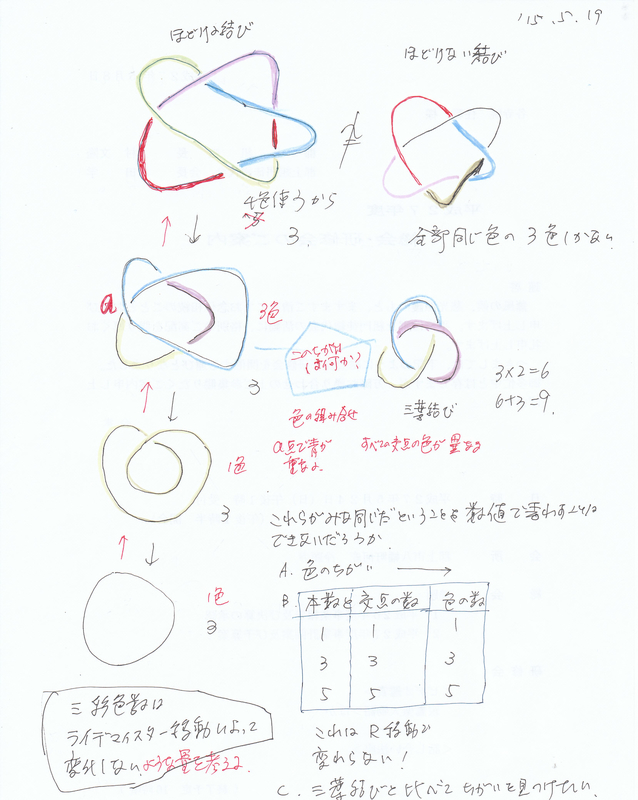 '15.5.19
ほどける結び
ほどけない結び
≠
4色使うから
3.
全部同じ色の 3色しかない
a
3色
3
このちがいは何か?
三葉結び
3×2=6
6+3=9.
色の組み合せ
a点で青が重なる
すべての交点の色が異なる
1色
3
これらがみな同じだということを数値で表わすことはできないだろうか
A. 色のちがい →
B. 本数と 交点の数 色の数
1 1 1
3 3 3
5 5 5
1色
3
これはR移動で変わらない!
三彩色数はライデマイスター移動によって変化しないような量を考える
C. 三葉結びと比べてちがいを見つけたい.